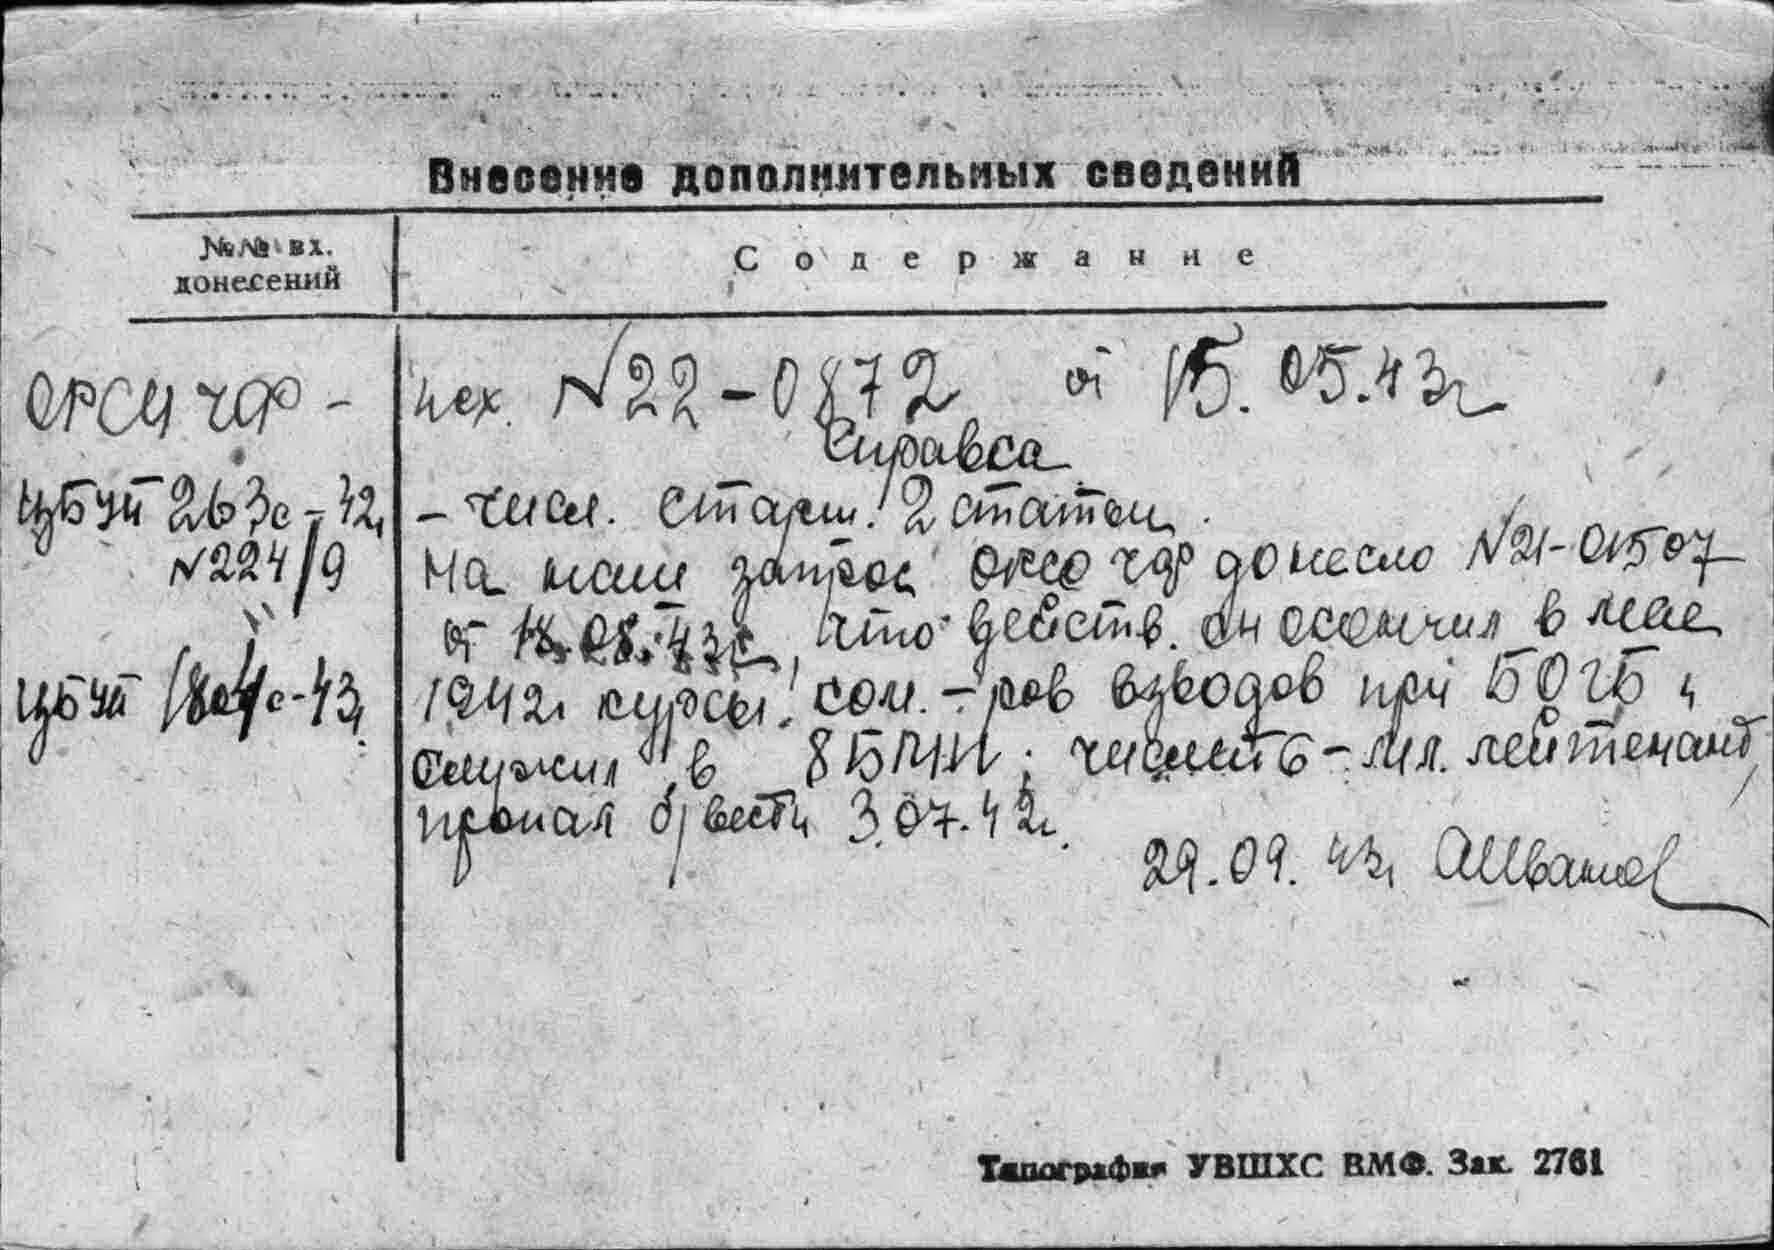 Внесение дополнительных сведений
№№ вх.
донесений
Содержание
ОРСИ ЧФ – исх. N 22-0872 от 15.05.43г
Справка
ЦБУП 263с-42г – числ. старш. 2 статьи.
N224/9 На наш запрос ОКСО ЧФ донесло N21-01507
от 18.08.43г, что действ. он окончил в мае
ЦБУП 1804с-43г 1942г курсы ком.-ров взводов при БОГБ и
служил в 8БМП; числить – мл. лейтенант,
пропал б/вести 3.07.42г.
29.09.43г
Типография УВШХС ВМФ. Зак. 2761